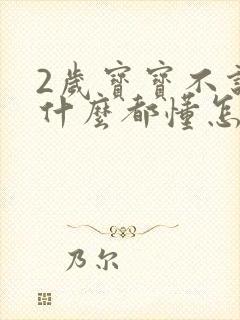 2歲寶寶不
什麼都懂怎
乃尔